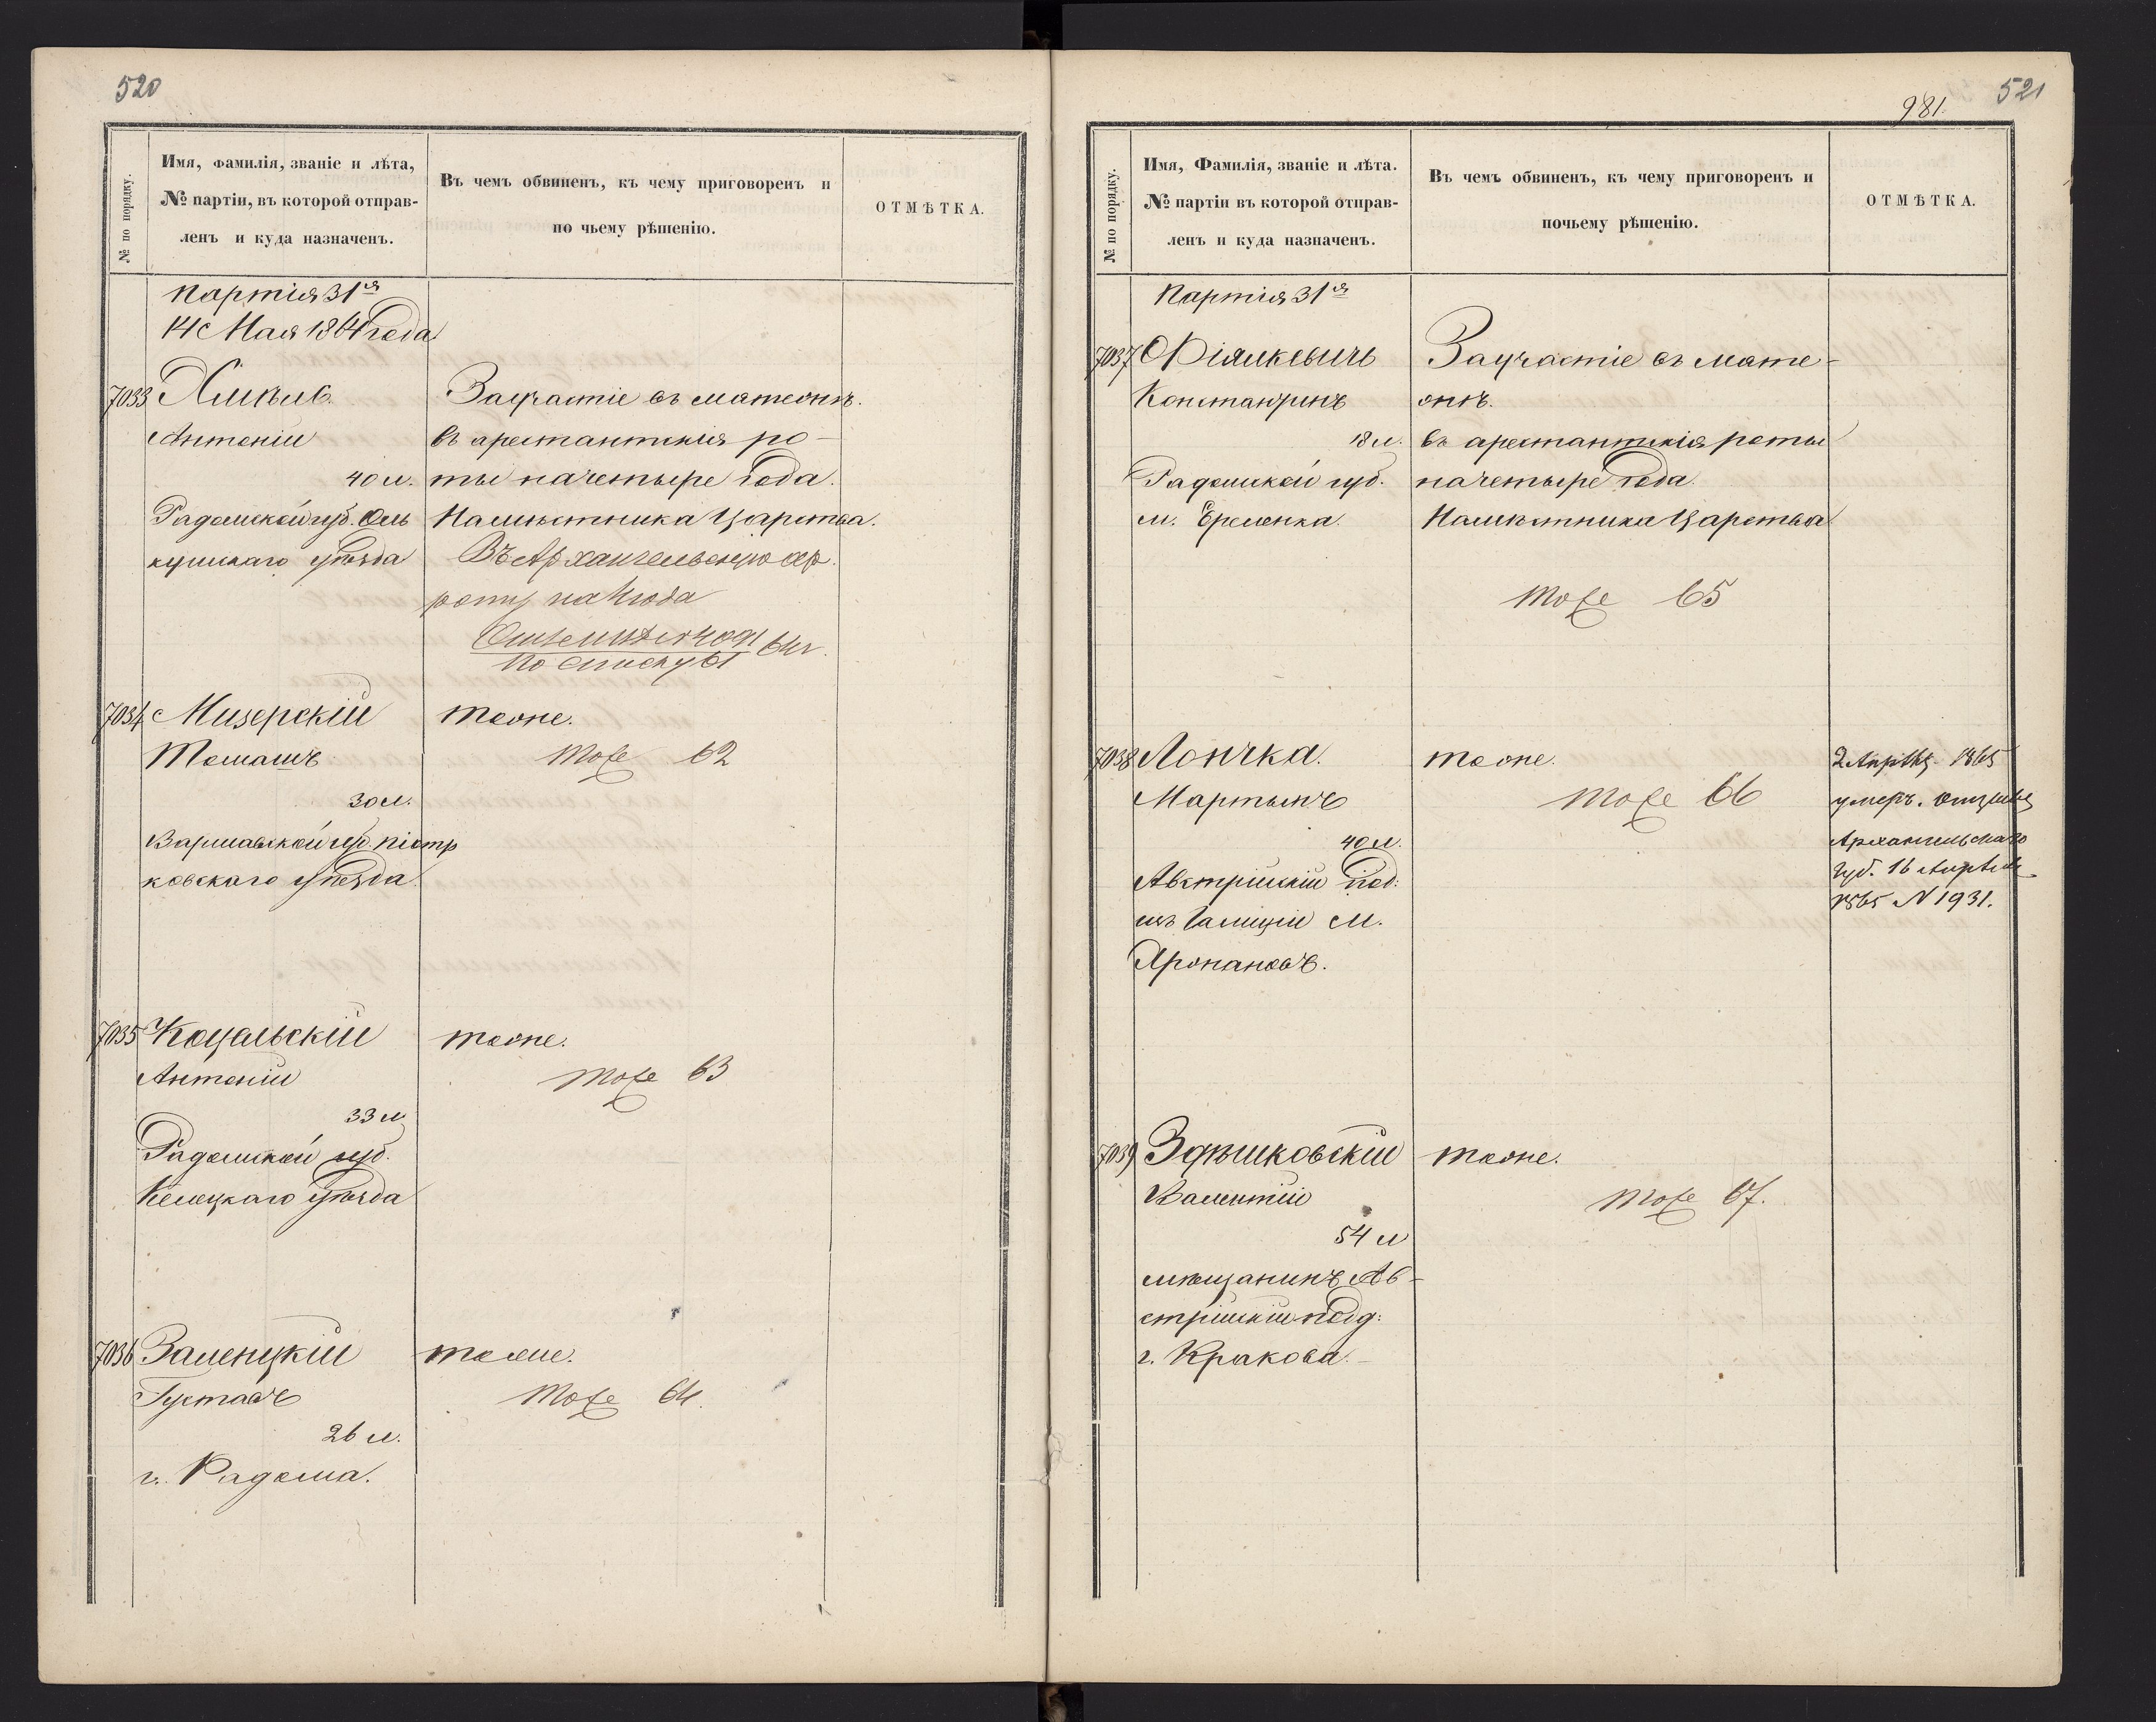 520
№ по порядку.
Имя, фамилія, званіе и лѣта,
№ партіи, въ которой отправ-
ленъ и куда назначенъ.
Въ чемъ обвиненъ, къ чему приговоренъ и
по чьему рѣшенію.
ОТМѢТКА.
Партія 31я
14 Мая 1864 года
7033
Антоній
40 л.
Радомской губ. Оль
кушскаго уѣзда
За участіе въ мятежѣ.
въ арестантскія ро-
ты на четыре года.
Намѣстника Царства.
Въ Архангельскую ар.
роту на 4 года
4091 64 г.
По списку 61
7034 Мизерскій
Томашъ
30 л.
Варшавской губ. Піотр
ковскаго уѣзда
тоже.
Тоже 62
7035 Коцальскій
Антоній
33 л.
Радомской губ.
Келецкаго уѣзда
тоже.
Тоже 63
7036 Заленцкій
Густавъ
26 л.
г. Радома.
тоже.
Тоже 64.
521
981.
№ по порядку.
Имя, Фамилія, званіе и лѣта.
№ партіи въ которой отправ-
ленъ и куда назначенъ.
Въ чемъ обвиненъ, къ чему приговоренъ и
почьему рѣшенію.
ОТМѢТКА.
Партія 31я
7037
Константинъ
18 л.
Радомской губ.
м.
За участіе въ мяте-
жѣ.
въ арестантскія роты
на четыре года.
Намѣстника Царства
Тоже 65
7038 Лончка.
Мартынъ
40 л.
Австрійскій под:
изъ Галиціи м.
тоже.
Тоже 66
2 Апрѣля 1865
умеръ. отзывъ
Архангельскаго
губ. 16 Апрѣля
1865 N 1931.
7039 Здѣшковскій
Валентій
54 л
мѣщанинъ Ав-
стрійскій подд:
г. Кракова.
тоже.
Тоже 67.